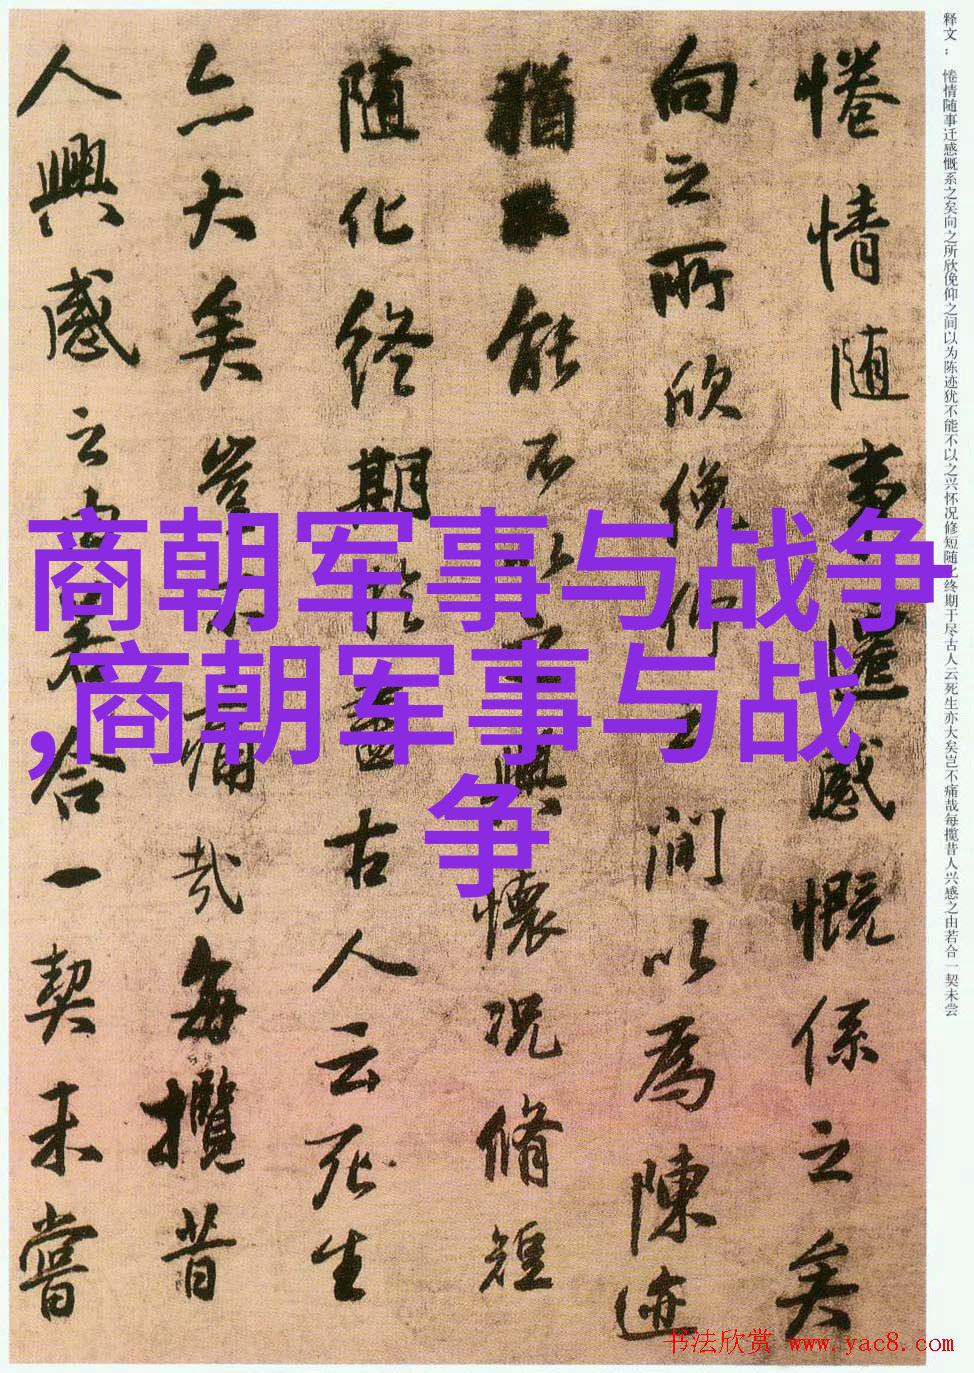 释文：惓情随事迁感慨系之矣向之所欣俛仰之间以为陈迹犹不能不以之兴怀况修短随化终期于尽古人云死生亦大矣岂不痛哉每揽昔人兴感之由若合一契未尝
惓情随事遷感慨係之矣
向之所欣俛仰之間以為陳迹
猶不能不以之興懷況脩短
随化終期於盡古人云死生
亦大矣豈不痛哉每攬昔
人興感之由若合一契未嘗
商朝军事与战争
,商朝军事与战
争
书法欣赏 www.yac8.com